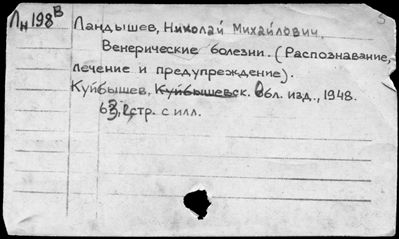 Лн198В
Ландышев, Николай Михайлович.
Венерические болезни. (Распознавание,
лечение и предупреждение).
Куйбышев, Куйбышевск. обл. изд., 1948.
стр. с илл.